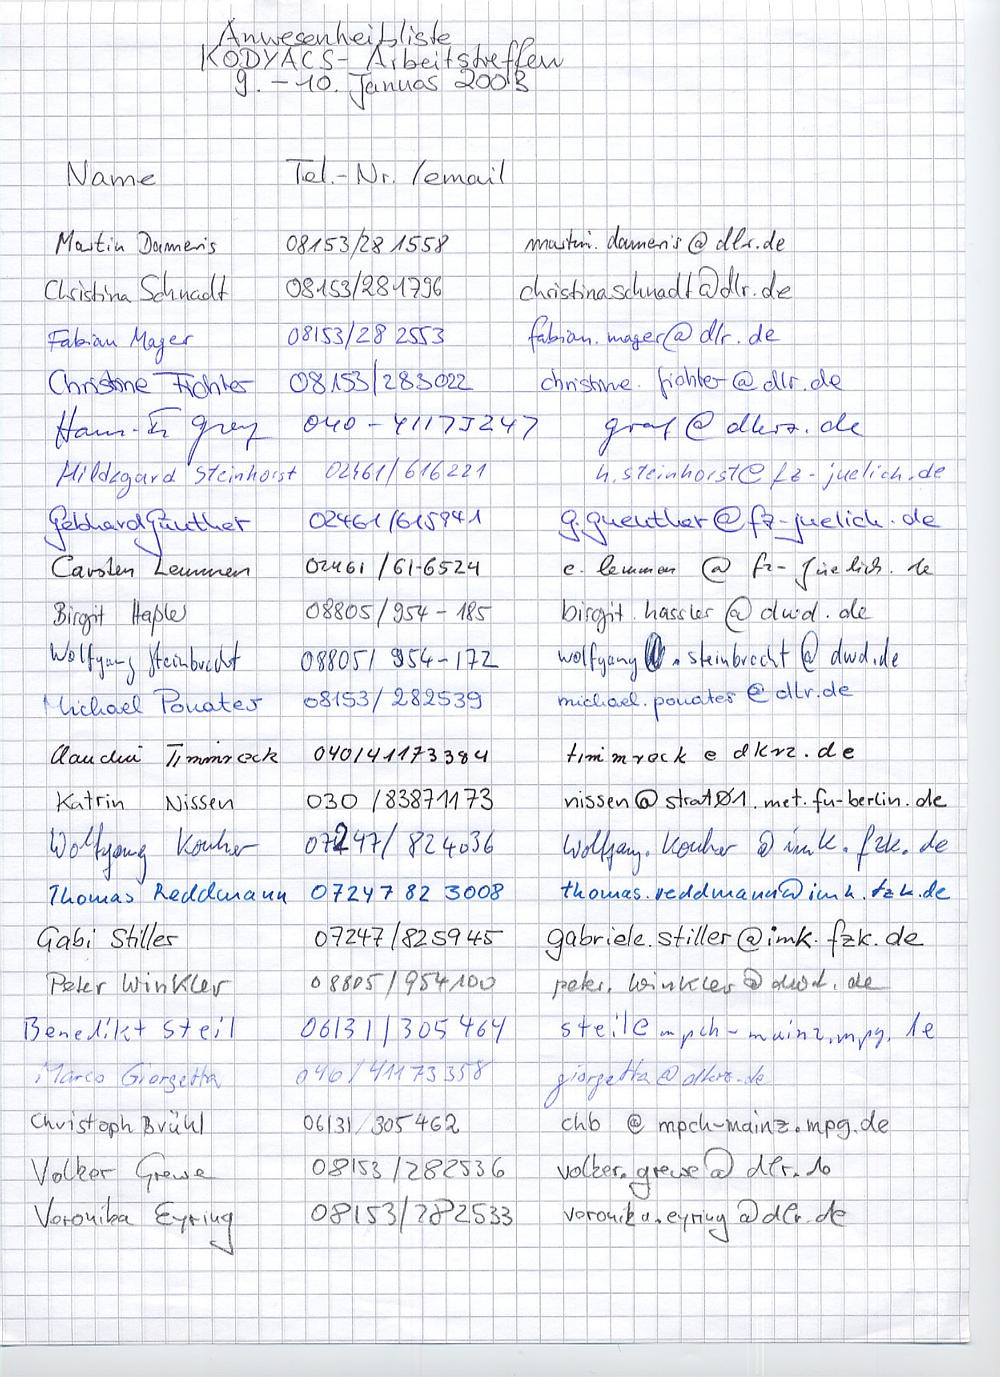 Anwesenheitsliste
KODYACS - Arbeitstreffen
9. - 10. Januar 2003
Name Tel.-Nr. /email
Martin Dameris 08153/28 1558 martin.dameris@dlr.de
Christina Schnadt 08153/281796 christina.schnadt@dlr.de
Fabian Mager 08153/28 2553 fabian.mager@dlr.de
Christine Fichter 08153/283022 christine.fichter@dlr.de
Hans-F. Graf 040-41173247 graf@dkrz.de
Hildegard Steinhorst 02461/616221 h.steinhorst@fz-juelich.de
Gebhard Günther 02461/615941 g.guenther@fz-juelich.de
Carsten Lemmen 02461/61-6524 c.lemmen@fz-juelich.de
Birgit Haßler 08805/954-185 birgit.hassler@dwd.de
Wolfgang Steinbrecht 08805/954-172 wolfgang.steinbrecht@dwd.de
Michael Ponater 08153/282539 michael.ponater@dlr.de
Claudia Timmreck 040/41173384 timmreck@dkrz.de
Katrin Nissen 030/83871173 nissen@strat01.met.fu-berlin.de
Wolfgang Kouker 07247/824036 Wolfgang.Kouker@imk.fzk.de
Thomas Reddmann 07247 82 3008 thomas.reddmann@imk.fzk.de
Gabi Stiller 07247/825945 gabriele.stiller@imk.fzk.de
Peter Winkler 08805/954100 peter.winkler@dwd.de
Benedikt Steil 06131/305 464 steil@mpch-mainz.mpg.de
Marco Giorgetta 040/41173358 giorgetta@dkrz.de
Christoph Brühl 06131/305462 chb@mpch-mainz.mpg.de
Volker Grewe 08153/282536 volker.grewe@dlr.de
Veronika Eyring 08153/282533 veronika.eyring@dlr.de